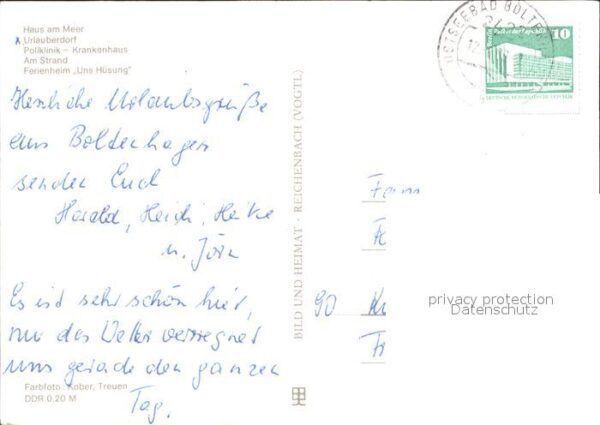 Haus am Meer
x Urlauberdorf
Poliklinik – Krankenhaus
Am Strand
Ferienheim „Uns Hüsung“
Herzliche Urlaubsgrüße
aus Boltenhagen
senden Euch
Harald, Heidi, Heike
u. Jörn
Es ist sehr schön hier,
nur das Wetter verregnet
uns gerade den ganzen
Tag.
Farbfoto: Kober, Treuen
DDR 0.20 M
BILD UND HEIMAT · REICHENBACH (VOGTL)
OSTSEEBAD BOLTEN
10
Palast der Republik
DEUTSCHE DEMOKRATISCHE REPUBLIK
Fam
90
privacy protection
Datenschutz